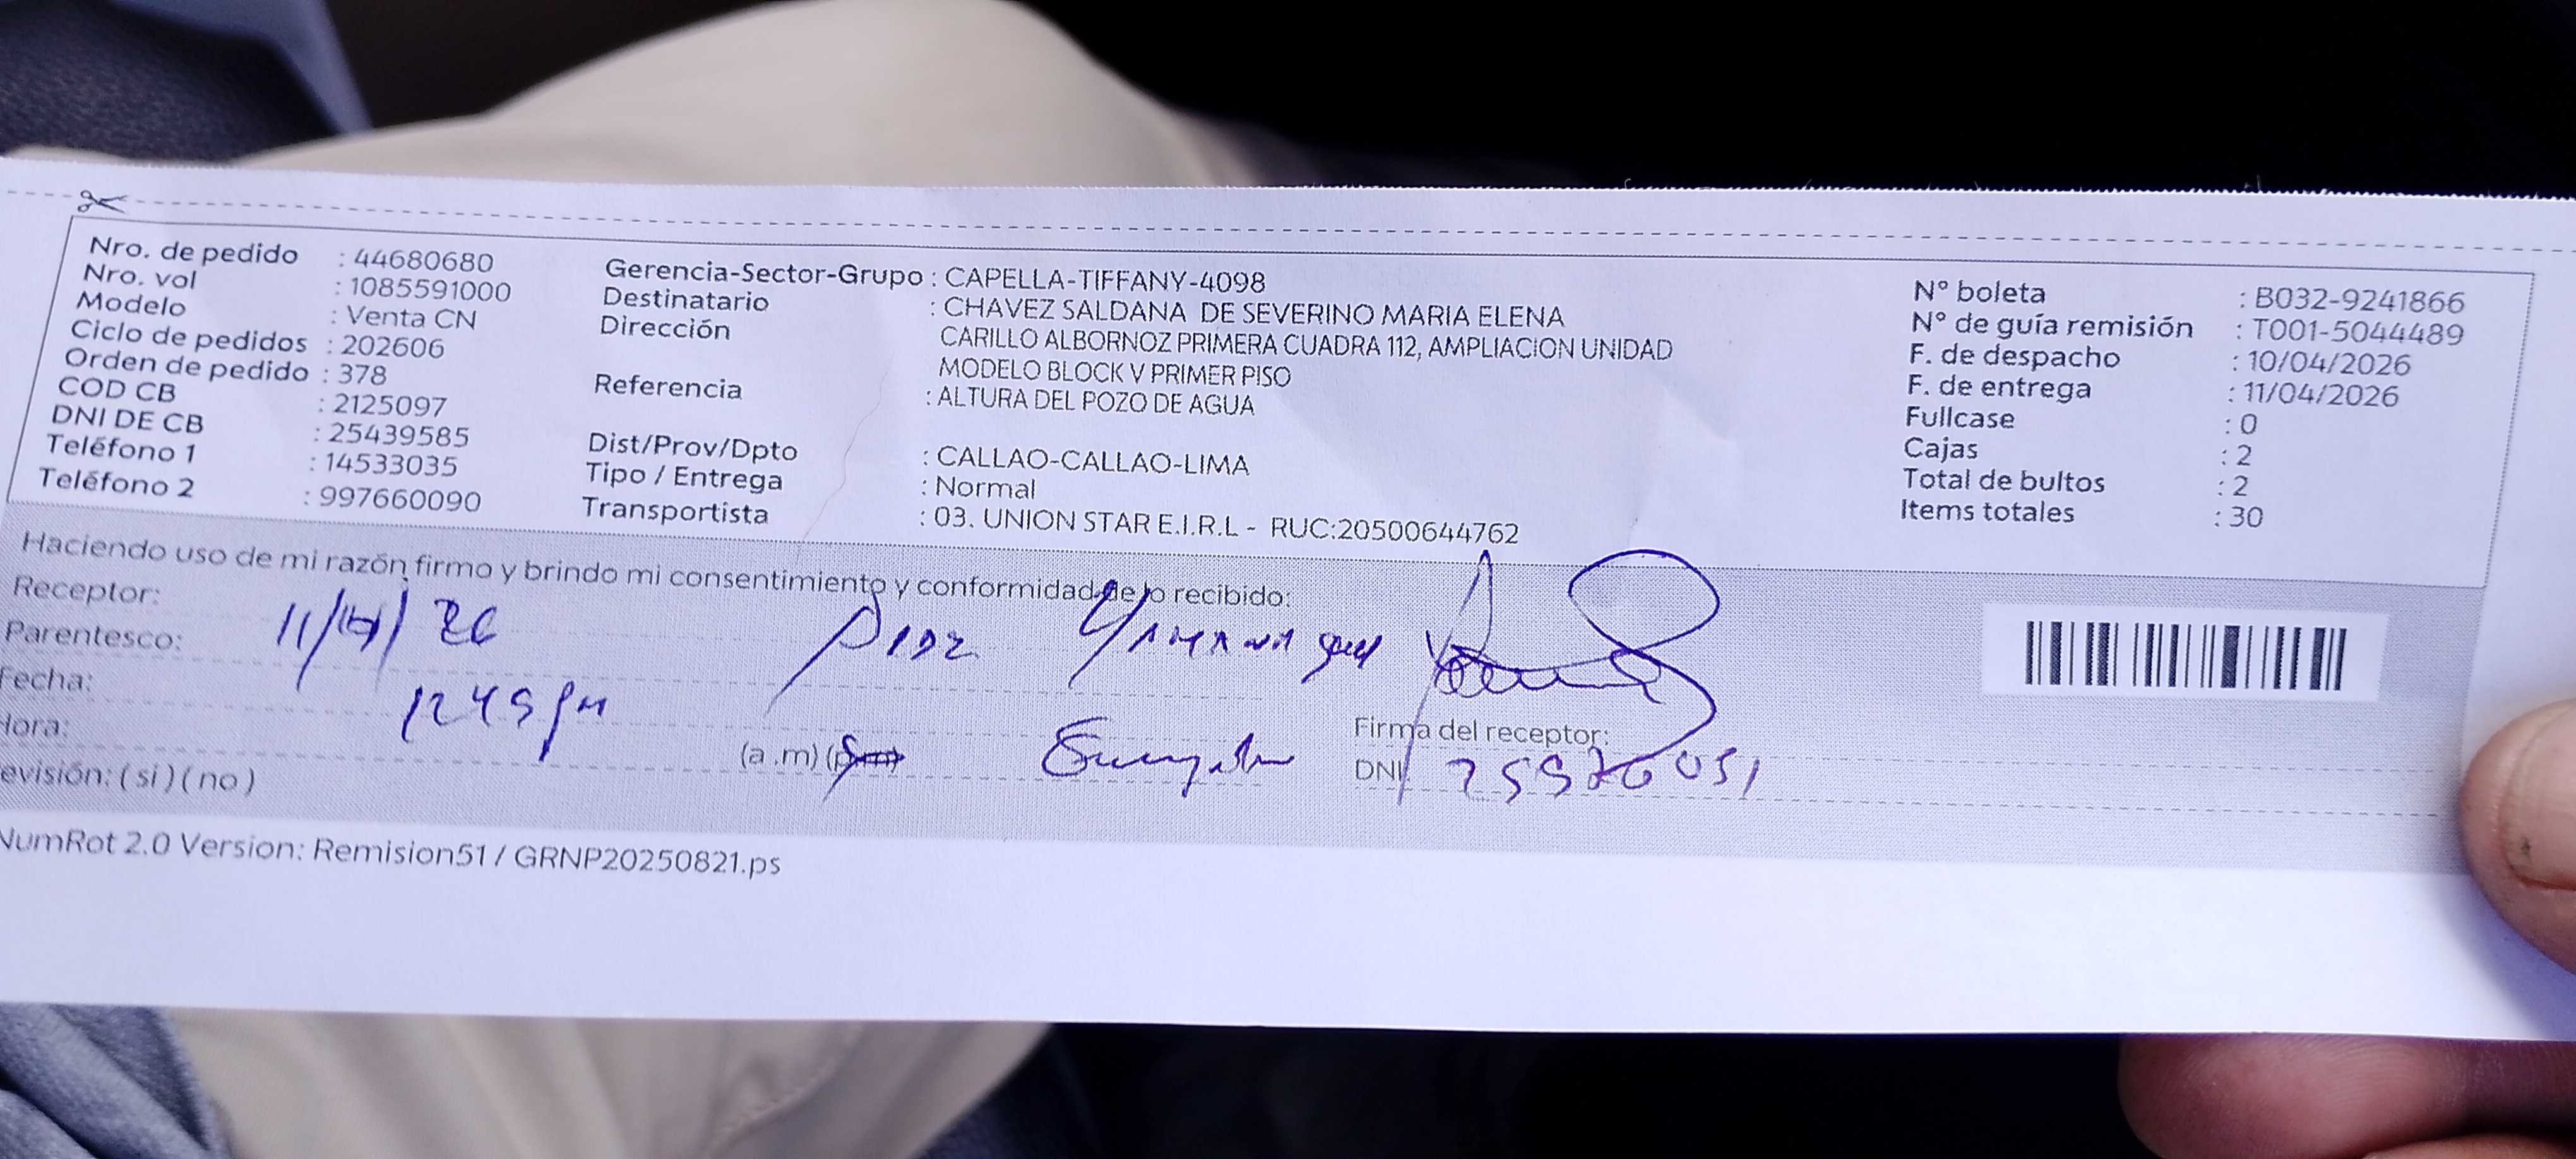 Nro. de pedido : 44680680
Nro. vol : 1085591000
Modelo : Venta CN
Ciclo de pedidos : 202606
Orden de pedido : 378
COD CB : 2125097
DNI DE CB : 25439585
Teléfono 1 : 14533035
Teléfono 2 : 997660090
Gerencia-Sector-Grupo : CAPELLA-TIFFANY-4098
Destinatario : CHAVEZ SALDANA DE SEVERINO MARIA ELENA
Dirección CARILLO ALBORNOZ PRIMERA CUADRA 112, AMPLIACION UNIDAD
MODELO BLOCK V PRIMER PISO
Referencia : ALTURA DEL POZO DE AGUA
Dist/Prov/Dpto : CALLAO-CALLAO-LIMA
Tipo / Entrega : Normal
Transportista : 03. UNION STAR E.I.R.L - RUC:20500644762
N° boleta : B032-9241866
N° de guía remisión : T001-5044489
F. de despacho : 10/04/2026
F. de entrega : 11/04/2026
Fullcase : 0
Cajas : 2
Total de bultos : 2
Items totales : 30
Haciendo uso de mi razón firmo y brindo mi consentimiento y conformidad de lo recibido:
Receptor:
Parentesco:
Fecha:
Hora: 1245 pm (a.m)
evisión: ( si ) ( no )
Firma del receptor:
DNI
NumRot 2.0 Version: Remision51 / GRNP20250821.ps